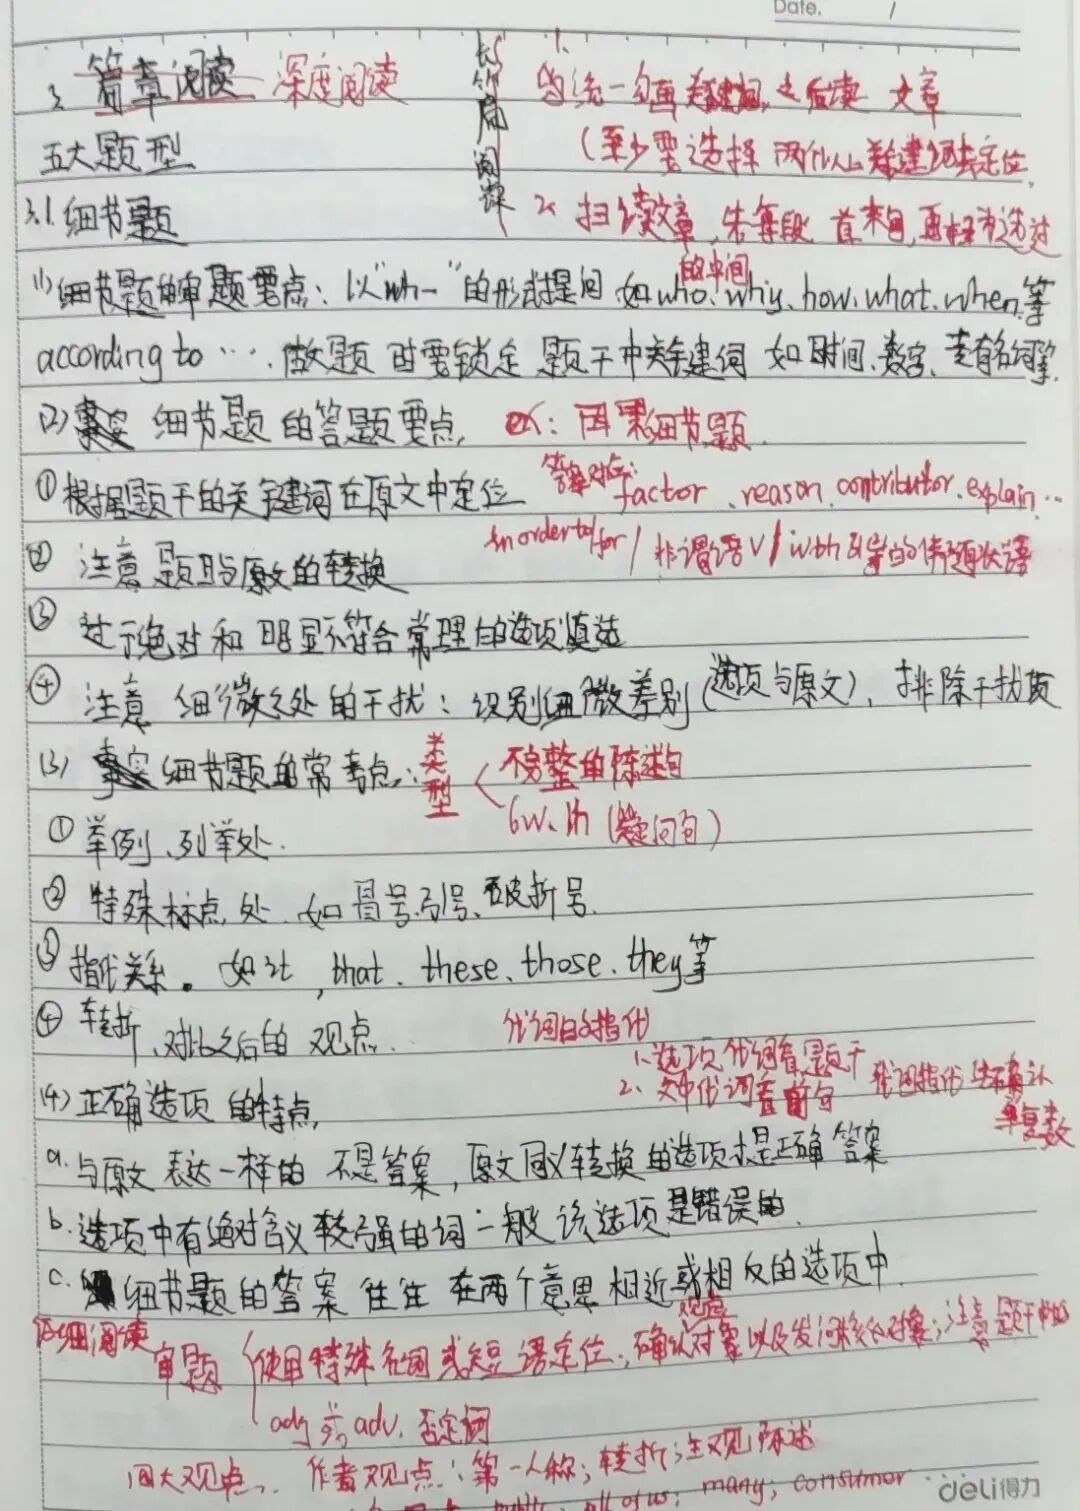 Date. /
3. 篇章阅读 深度阅读
长篇阅读
1. 先统一勾画关键词,之后读 文章
五大题型
(至少要选择 两个以上关键词去定位
3.1.细节题
2. 扫读文章,先每段 首末句,再扫描选过
的中间
(1)细节题的审题要点:以"wh-"的形式提问 如who、why、how、what、when等
according to …. 做题时要锁定 题干中关键词 如时间、数字、专有名词等.
(2)事实 细节题的答题要点. ex:因果细节题
①根据题干的关键词在原文中定位
答案对应:factor、reason、contributor、explain…
in order to/for/ 非谓语V/ with引导的伴随状语
② 注意 题目与原文的转换
③ 过于绝对和明显不符合常理的选项慎选
④ 注意 细微之处的干扰:识别细微差别(选项与原文),排除干扰项
(3) 事实细节题的常考点: 类型 < 不完整的陈述句
6w、1h (疑问句)
①举例、列举处.
② 特殊标点处.如冒号、引号、破折号.
③ 指代关系。如it,that、these、those、they等
④ 转折、对比之后的 观点.
代词的指代
1、选项代词看题干
2、文中代词看前句
代词指代 先确认
单复数
(4)正确选项的特点
a.与原文表达一样的 不是答案,原文同义转换的选项才是正确答案
b.选项中有绝对含义较强的词 一般该选项是错误的.
c. 细节题的答案 往往 在两个意思相近或相反的选项中.
仔细阅读
观点
审题 使用特殊名词或短语定位;确认对象以及发问核心对象;注意题干中的
adj或adv. 否定词
四大观点. 作者观点:第一人称;转折;主观陈述
all of us; many; consumer
deli得力